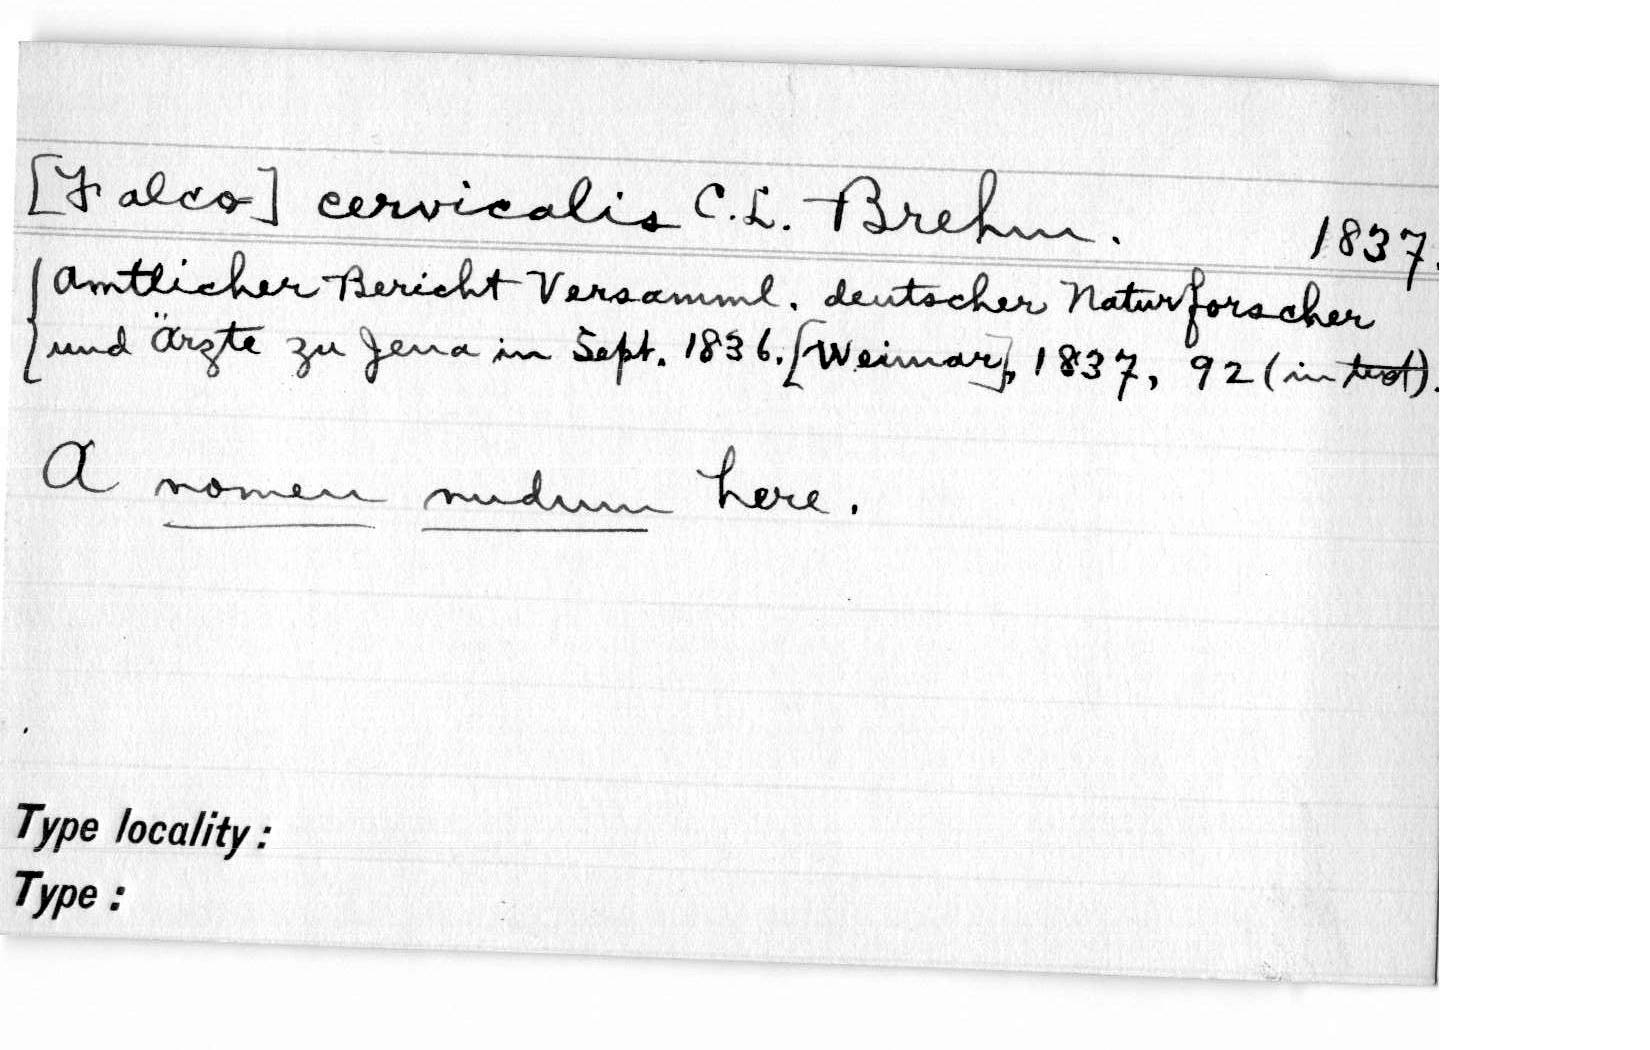 [Falco] cervicalis C.L. Brehm. 1837.
Amtlicher Bericht Versamml. deutscher Naturforscher
und Ärzte zu Jena in Sept. 1836. [Weimar], 1837, 92 (in text).
A nomen nudum here.
Type locality:
Type: